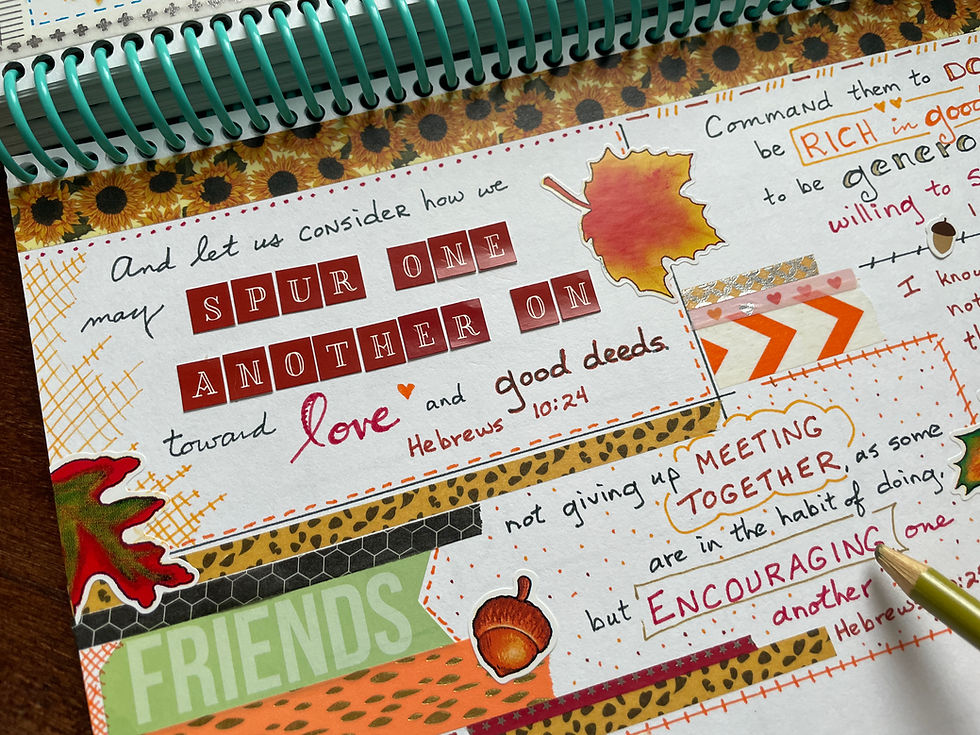 And let us consider how we
may SPUR ONE
ANOTHER ON
toward love and good deeds.
Hebrews 10:24
Command them to
be RICH in good
to be
willing to
I
not giving up MEETING
TOGETHER, as some
are in the habit of doing,
but ENCOURAGING one
another
Hebrews
FRIENDS